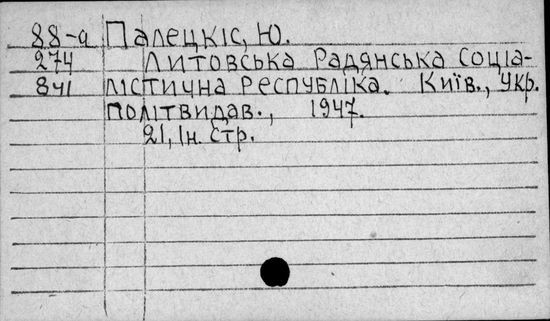 88-а Палецкіс, Ю.
274 Литовська Радянська Соціа-
841 лістична Республіка. Київ., Укр.
політвидав., 1947.
21, Ін. стр.